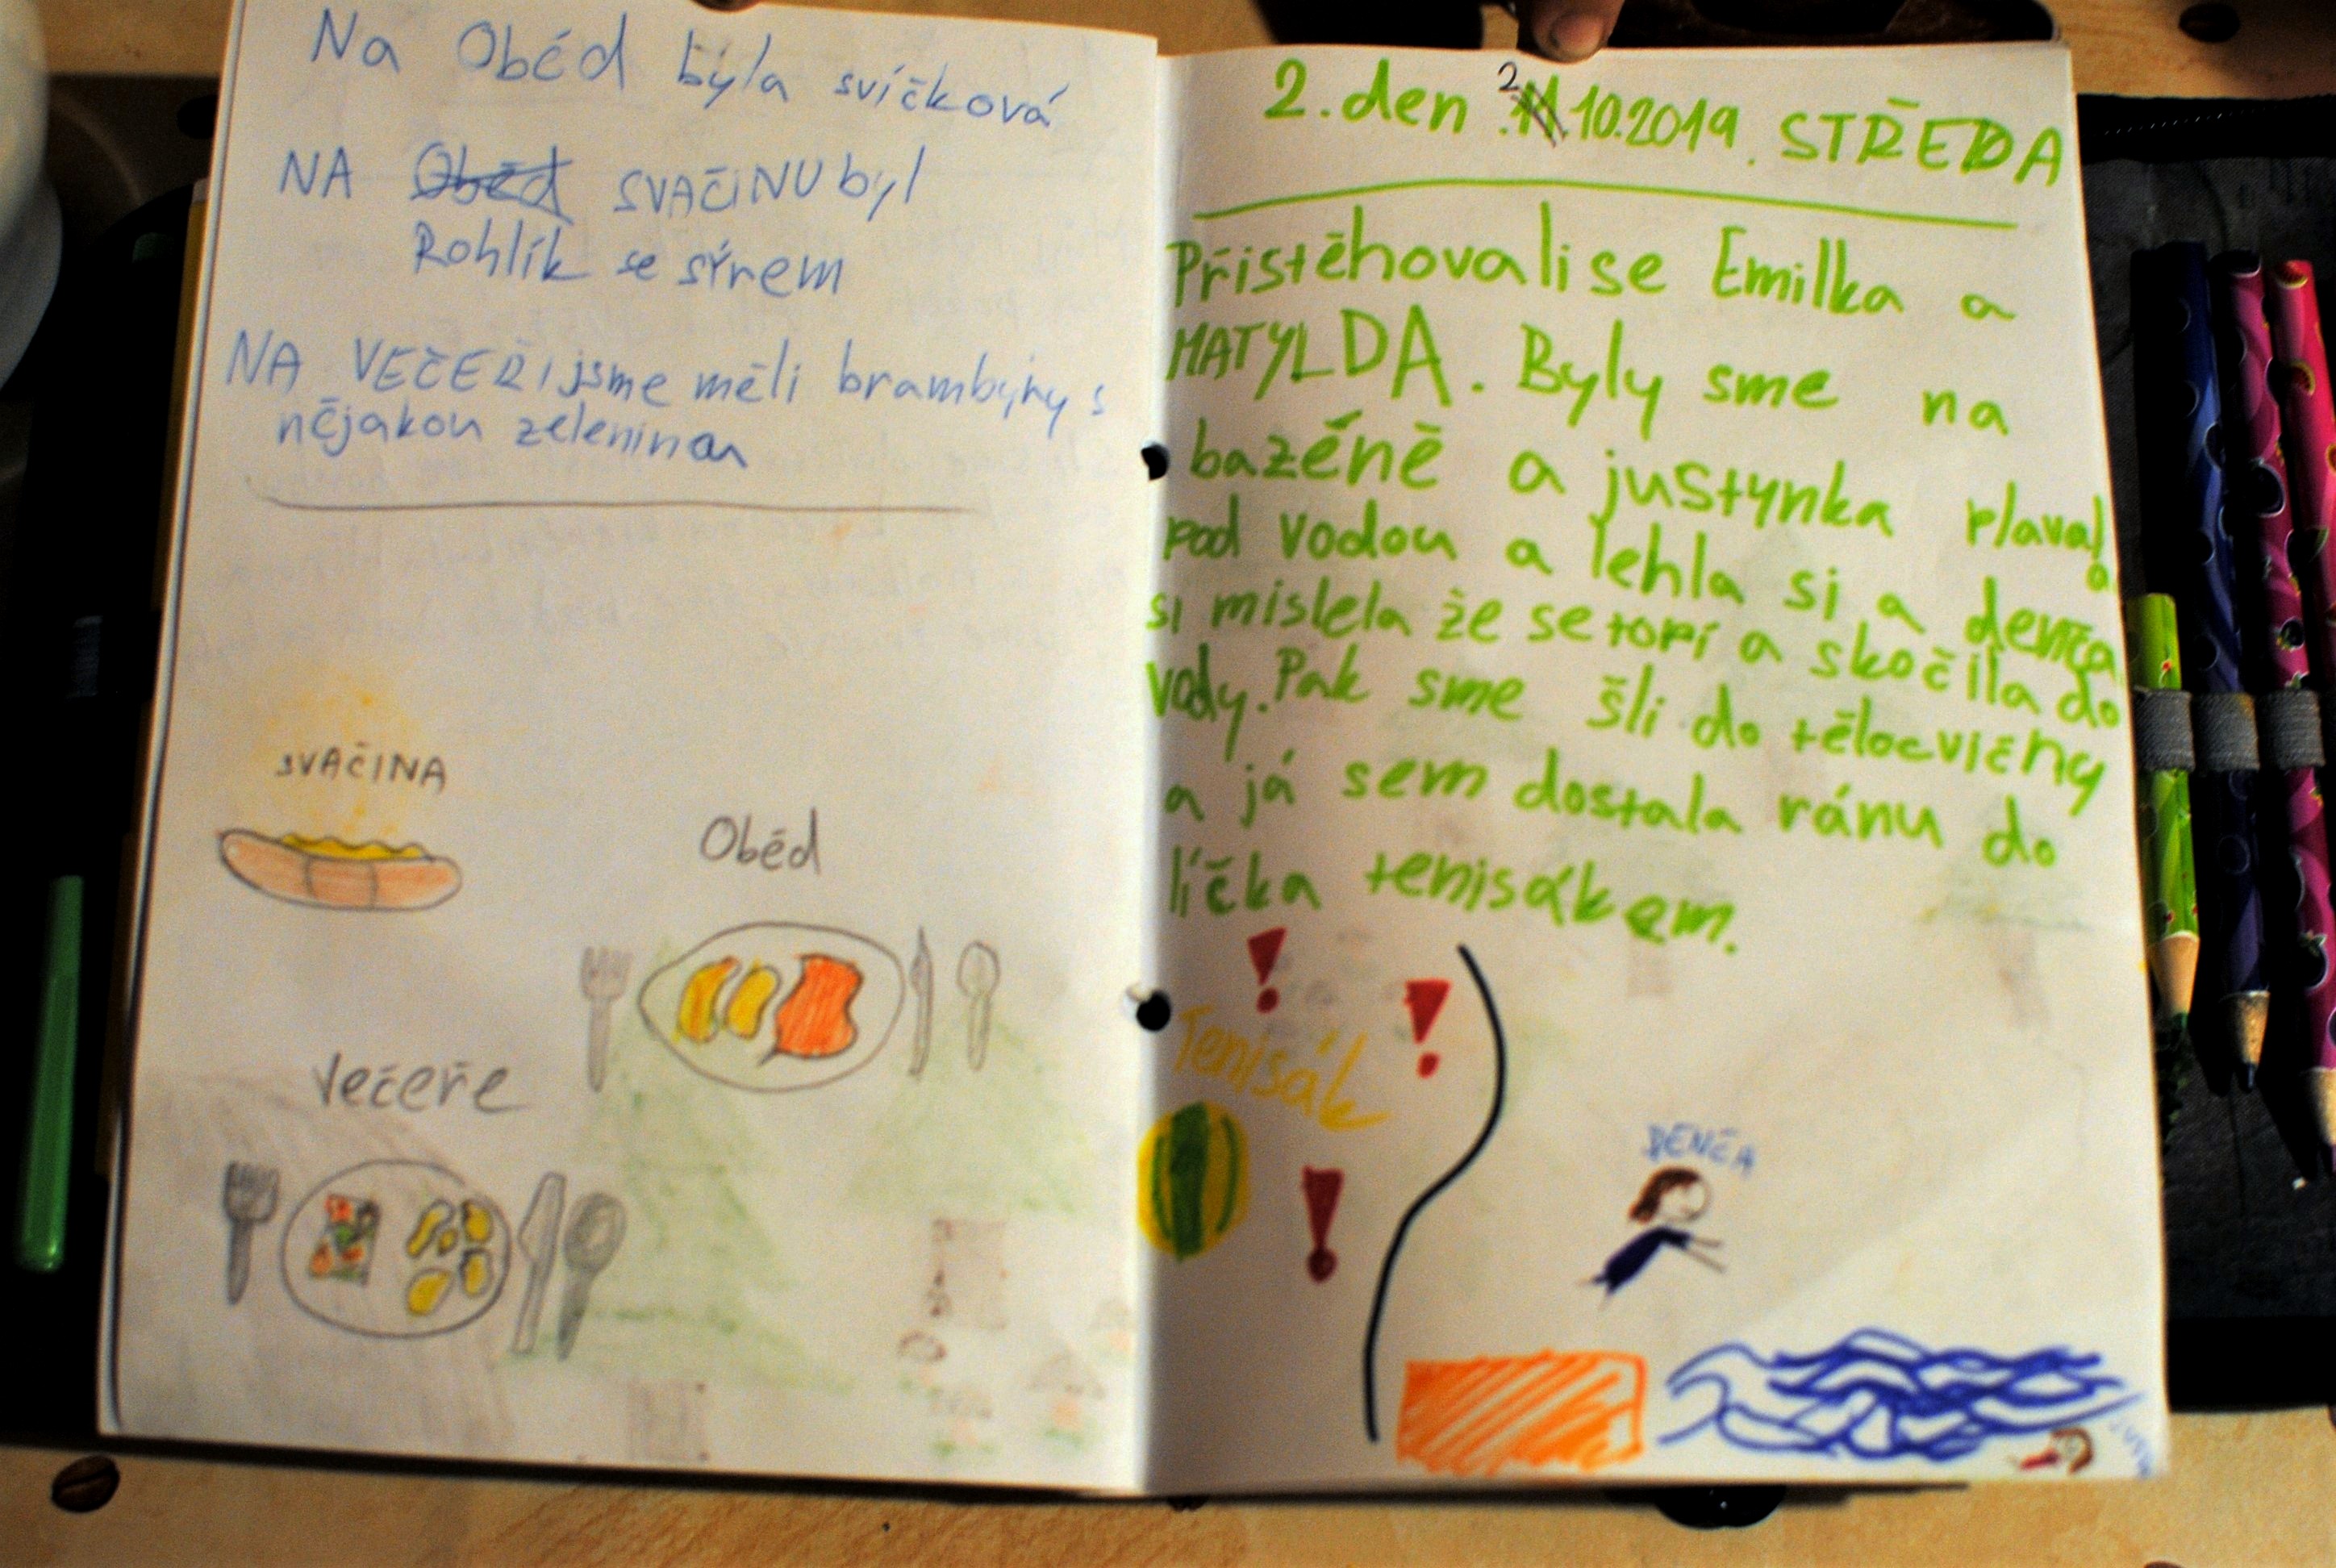 Na Oběd byla svíčková
NA Oběd SVAČINU byl
Rohlík se sýrem
NA VEČEŘI jsme měli brambůrky s
nějakou zeleninou
SVAČINA
Oběd
Večeře
2. den 2.10.2019. STŘEDA
Přistěhovali se Emilka a
MATYLDA. Byly sme na
bazéně a justynka plavala
pod vodou a lehla si a denča
si mislela že se topí a skočila do
vody. Pak sme šli do tělocvičny
a já sem dostala ránu do
líčka tenisákem.
Tenisák
DENČA